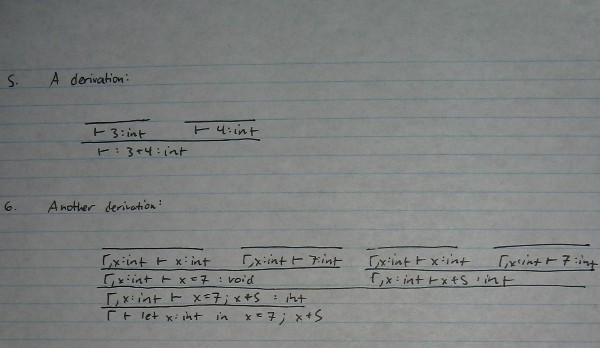 5. A derivation:
⊢ 3:int ⊢ 4:int
⊢ : 3+4 : int
6. Another derivation:
Γ,x:int ⊢ x:int Γ,x:int ⊢ 7:int Γ,x:int ⊢ x:int Γ,x:int ⊢ 7:int
Γ,x:int ⊢ x=7 : void Γ,x:int ⊢ x+5 : int
Γ,x:int ⊢ x=7; x+5 : int
Γ ⊢ let x:int in x=7; x+5